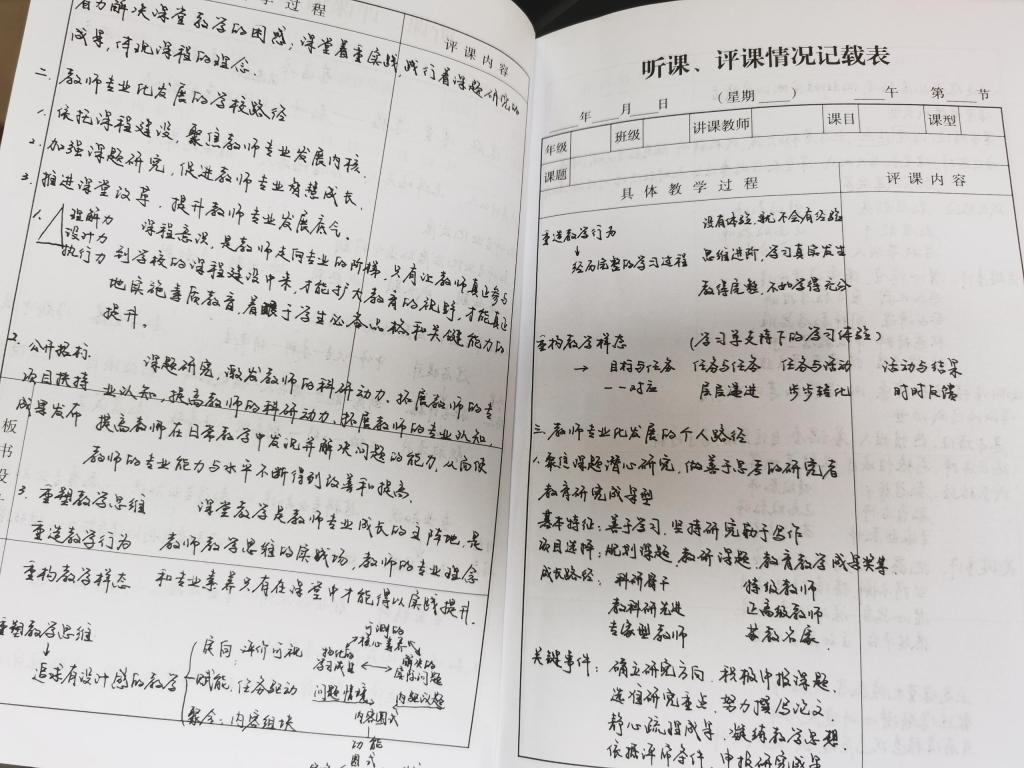 学过程
评课内容
着力解决课堂教学的困惑；课堂着重实践，践行着课题研究的
成果，体现课程的理念。
二、教师专业化发展的学校路径
1. 依托课程建设，聚焦教师专业发展内核.
2. 加强课题研究，促进教师专业智慧成长.
3. 推进课堂改革，提升教师专业发展底气.
1. 理解力 设计力 执行力
课程意识，是教师走向专业的阶梯，只有让教师真正参与
到学校的课程建设中来，才能扩大教育的视野，才能真正
地实施素质教育，着眼于学生必备品格和关键能力的
提升。
2. 公开招标 项目扶持 成果发布
课题研究，激发教师的科研动力、拓展教师的专
业认知，提高教师的科研动力、拓展教师的专业认知，
提高教师在日常教学中发现并解决问题的能力，从而使
教师的专业能力与水平不断得到改善和提高.
板书设
3. 重塑教学思维 课堂教学是教师专业成长的主阵地，是
重造教学行为 教师教学思维的实战场，教师的专业理念
重构教学样态 和专业素养只有在课堂中才能得以实践提升.
重塑教学思维
↓
追求有设计感的教学
展向：评价可视
赋能：任务驱动
聚合：内容组块
可测的
核心素养
物化的
学习成果
解决的
实际问题
问题情境
内驱议题
内容图式
功能
图式
听课、评课情况记载表
年 月 日 （星期 ） 午 第 节
年级 班级 讲课教师 课目 课型
课题
具体教学过程 评课内容
重造教学行为 没有体验，就不会有经验
↓
经历完整的学习过程 思维进阶，学习真实发生
教得完整，不如学得充分
重构教学样态 (学习单支持下的学习体验)
→ 目标与任务 任务与任务 任务与活动 活动与结果
一一对应 层层递进 步步转化 时时反馈
三、教师专业化发展的个人路径
1. 聚焦课题潜心研究，做善于思考的研究者
教育研究成果型
基本特征：善于学习，坚持研究勤于写作
项目选择：规划课题，教研课题，教育教学成果奖等.
成长路径： 科研骨干 特级教师
教科研先进 正高级教师
专家型教师 苏教名家.
关键事件： 确立研究方向，积极申报课题.
选准研究重点，努力撰写论文
静心疏理成果，凝练教学思想.
依据评审条件，申报研究成果